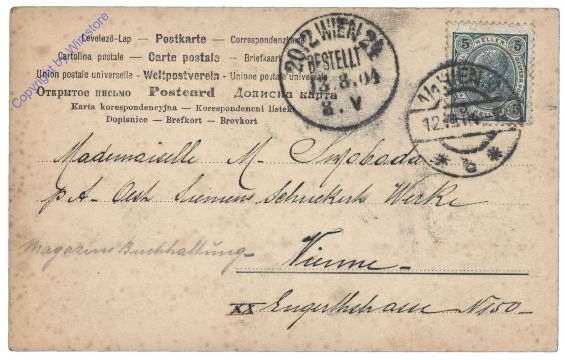 Levelező-Lap — Postkarte — Correspondenzkarte
Cartolina postale — Carte postale — Briefkaart
Union postale universelle — Weltpostverein — Unione postale universale
Открытое письмо Postcard — Дописна карта
Karta korespondencyjna — Korespondenčni lístek
Dopisnice — Brefkort — Brevkort
20/2 WIEN 2/1
BESTELLT
8.04
8. V
5 HELLER 5
WIEN
12.
Copyright by Winstore
Mademoiselle M. Swoboda
p A. Oest Siemens Schuckert Werke
Magazins Buchhaltung
Vienne
XX Engerthstrasse N 150